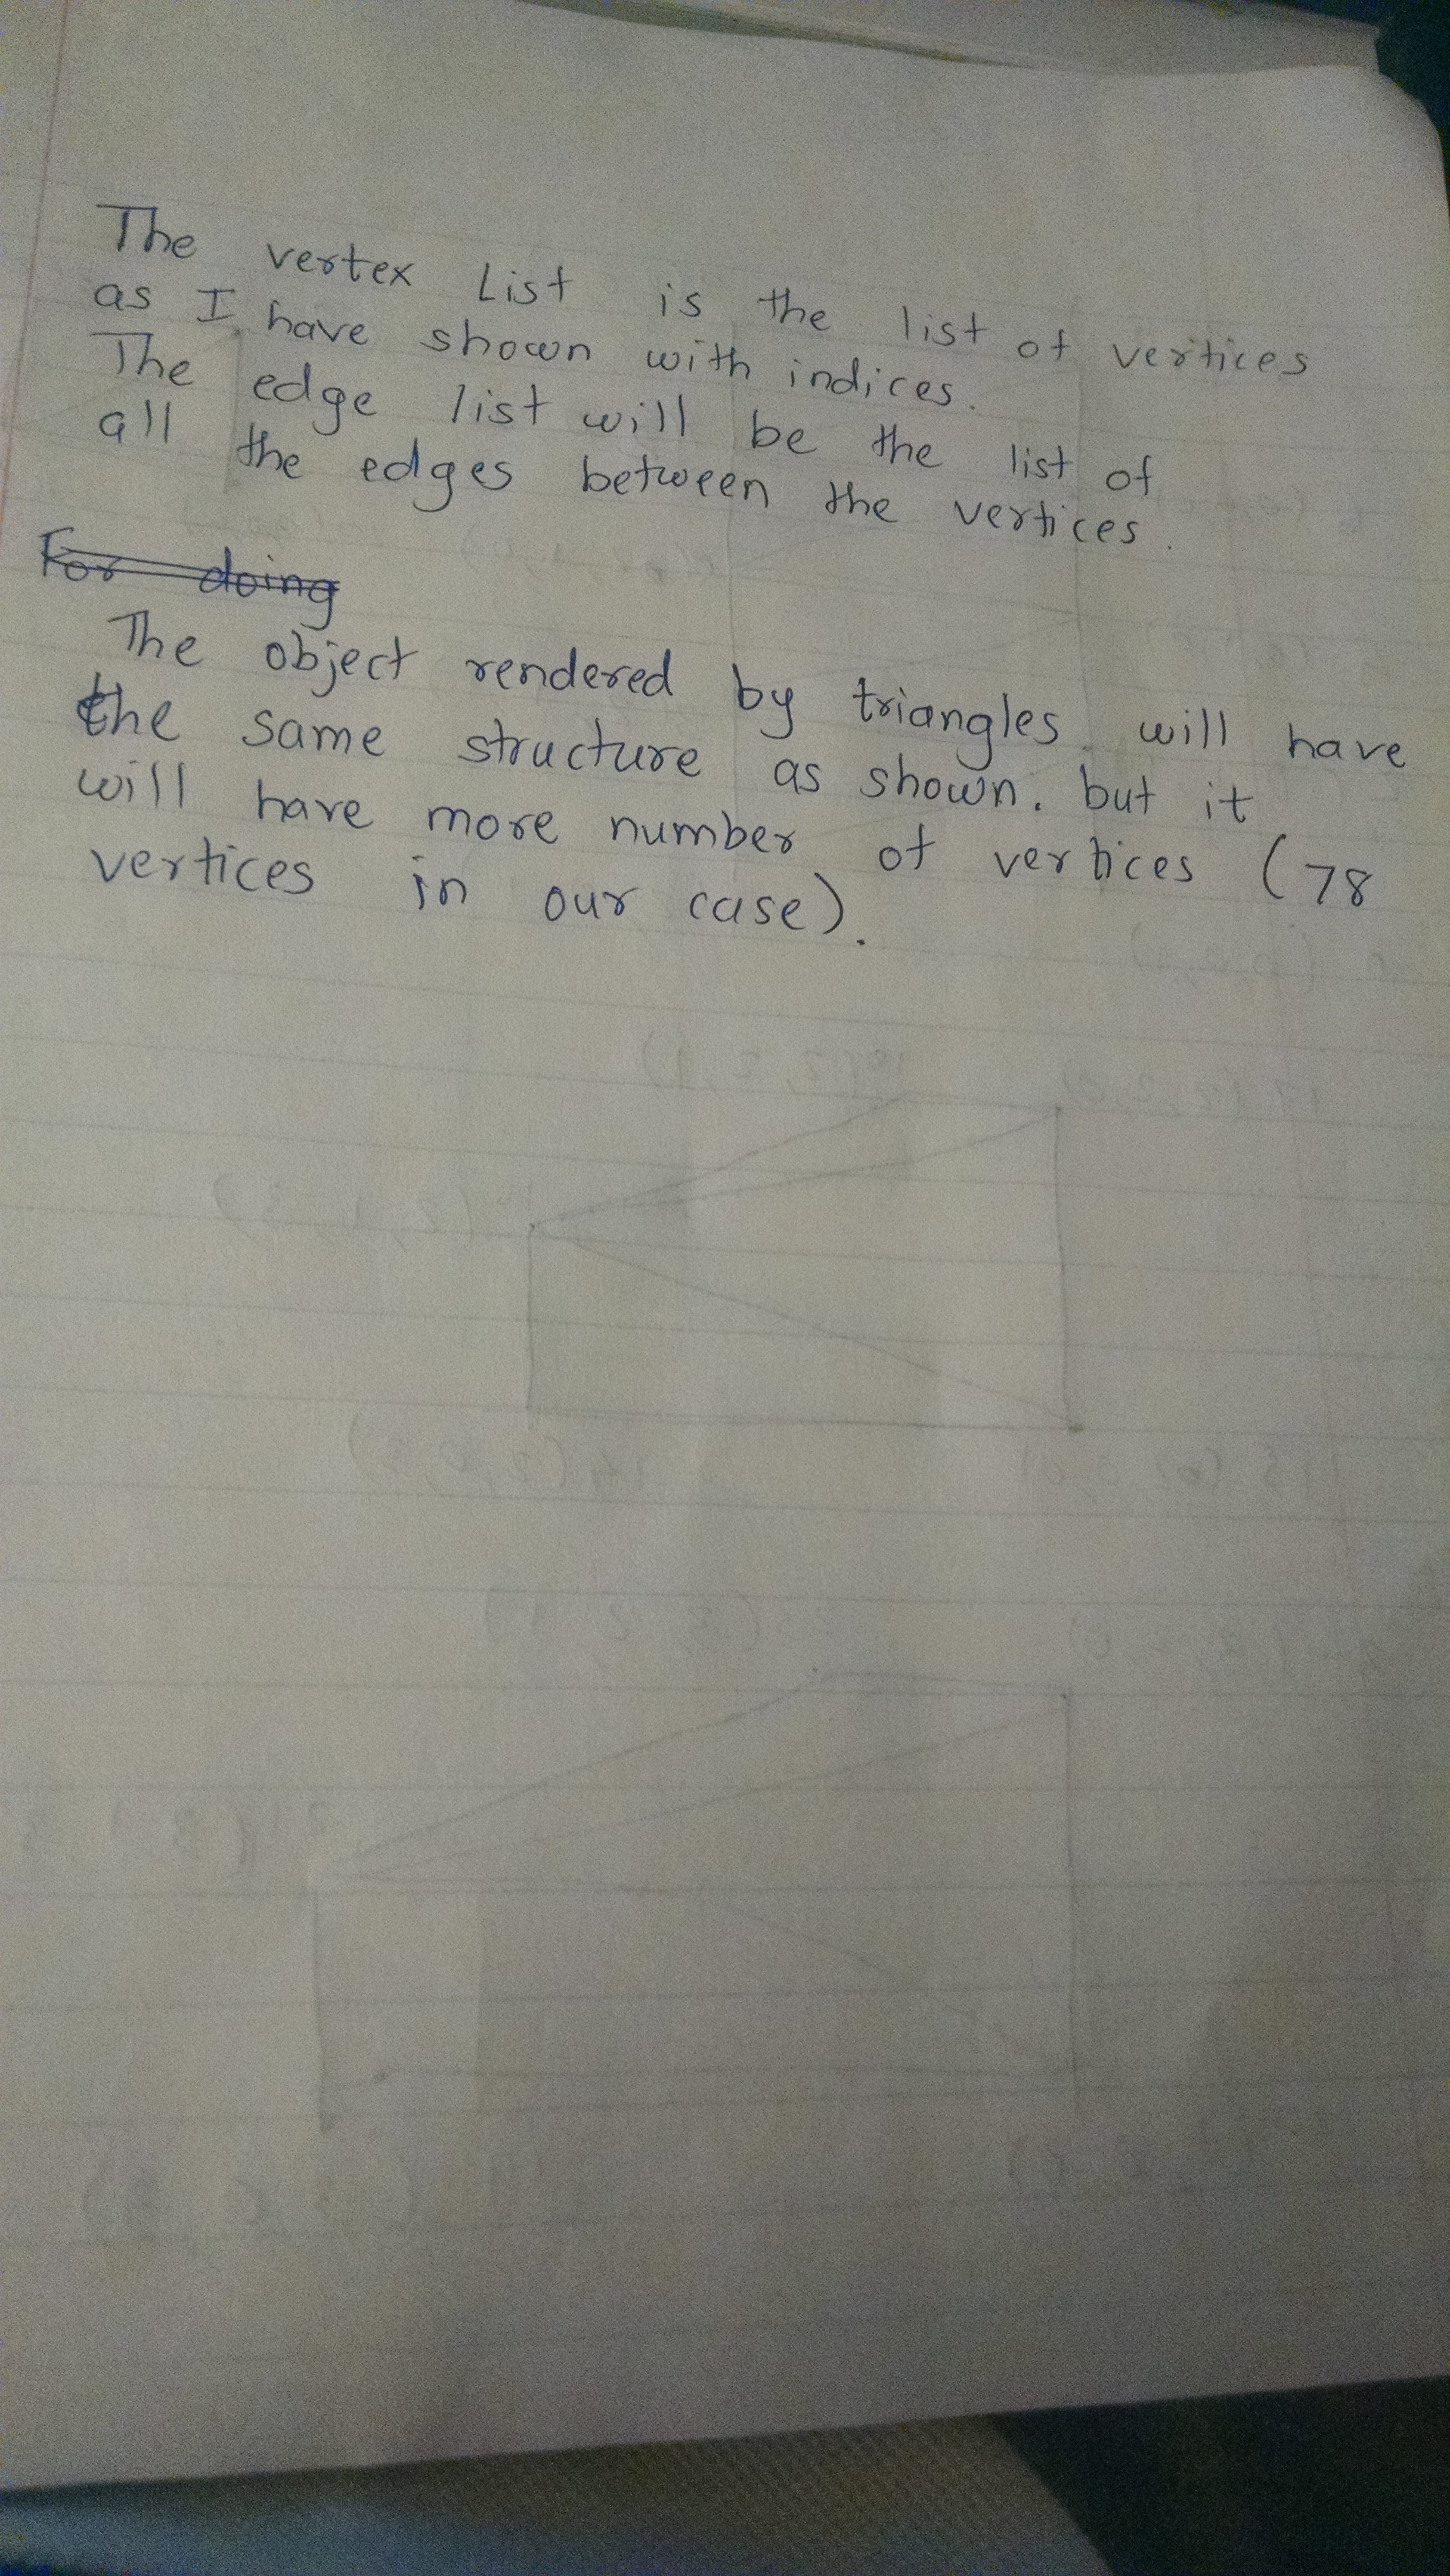 The vertex List is the list of vertices
as I have shown with indices.
The edge list will be the list of
all the edges between the vertices.
For doing
The object rendered by triangles will have
the same structure as shown. but it
will have more number of vertices (78
vertices in our case).